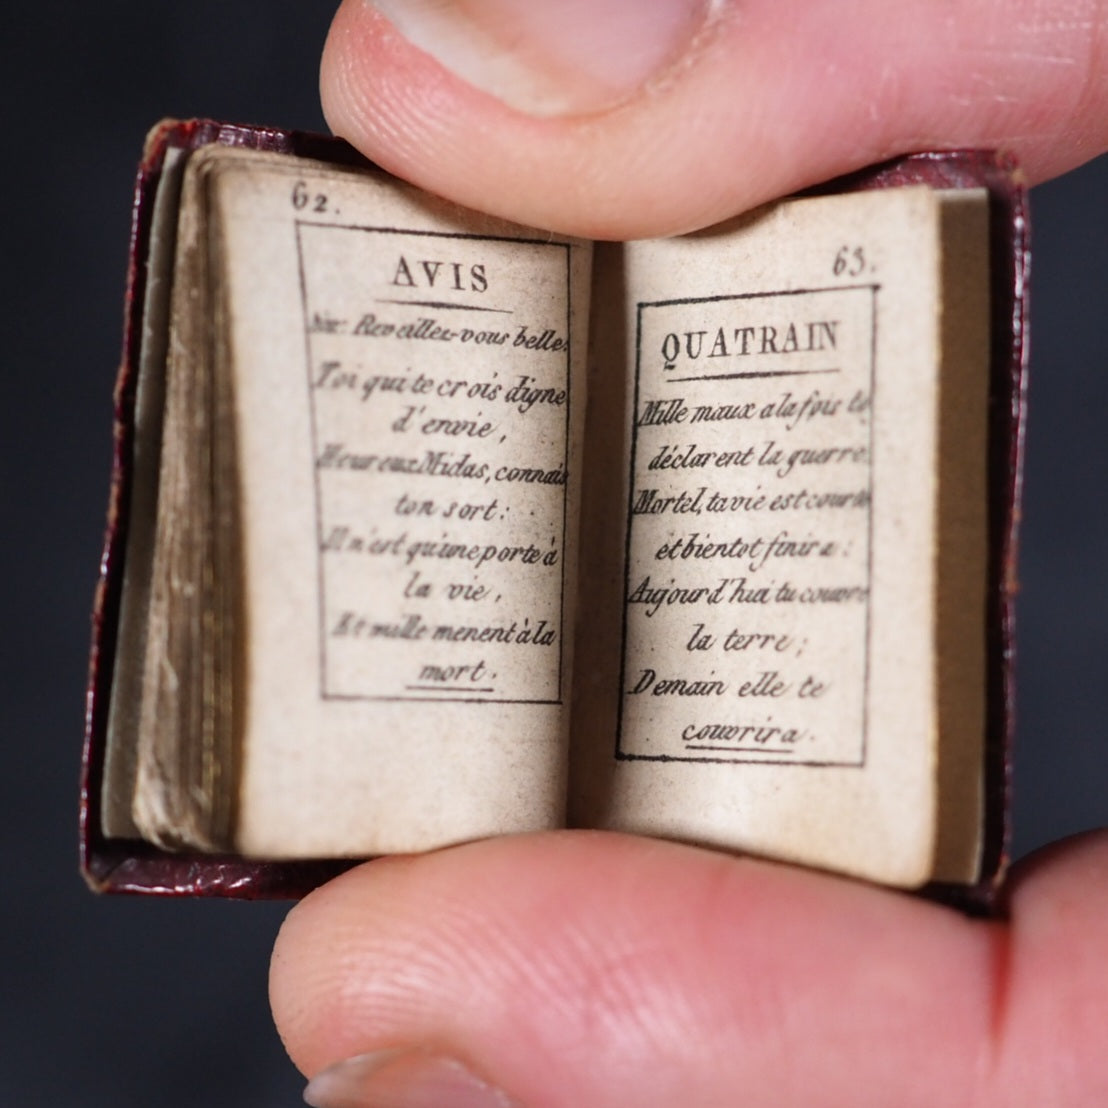 62.
AVIS
Air: Reveillez-vous belle.
Toi qui te crois digne
d'envie,
Heureux Midas, connais
ton sort:
Il n'est qu'une porte à
la vie,
Et mille menent à la
mort.
63.
QUATRAIN
Mille maux a la fois te
déclarent la guerre
Mortel, ta vie est courte
et bientot finira:
Aujourd'hui tu couvre
la terre;
Demain elle te
couvrira.